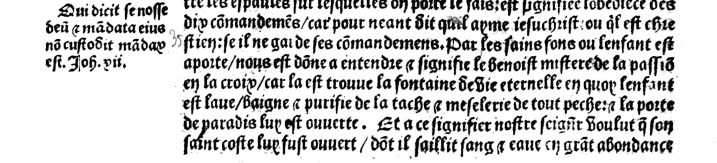 Qui dicit se nosse
deũ ⁊ mãdata eius
nõ custodit mẽdax
est. Joh. xii.
tre les espaules sur lesquelles on porte le fais: est signifiee lobediẽce des
dix commandemẽs/car pour neant dit quil ayme iesuchrist: ou ql est chre
stien: se il ne garde ses cõmandemens. Par les sains fons ou lenfant est
aporte/nous est dõne a entendre ⁊ signifie le benoist mistere de la passiõ
en la croix/car la est trouue la fontaine de vie eternelle en quoy lenfant
est laue/baigne ⁊ purifie de la tache ⁊ meselerie de tout peche: ⁊ la porte
de paradis luy est ouuerte. Et a ce signifier nostre seignr̃ voulut q̃ son
saint coste luy fust ouuert / dõt il saillit sang ⁊ eaue en grãt abondance